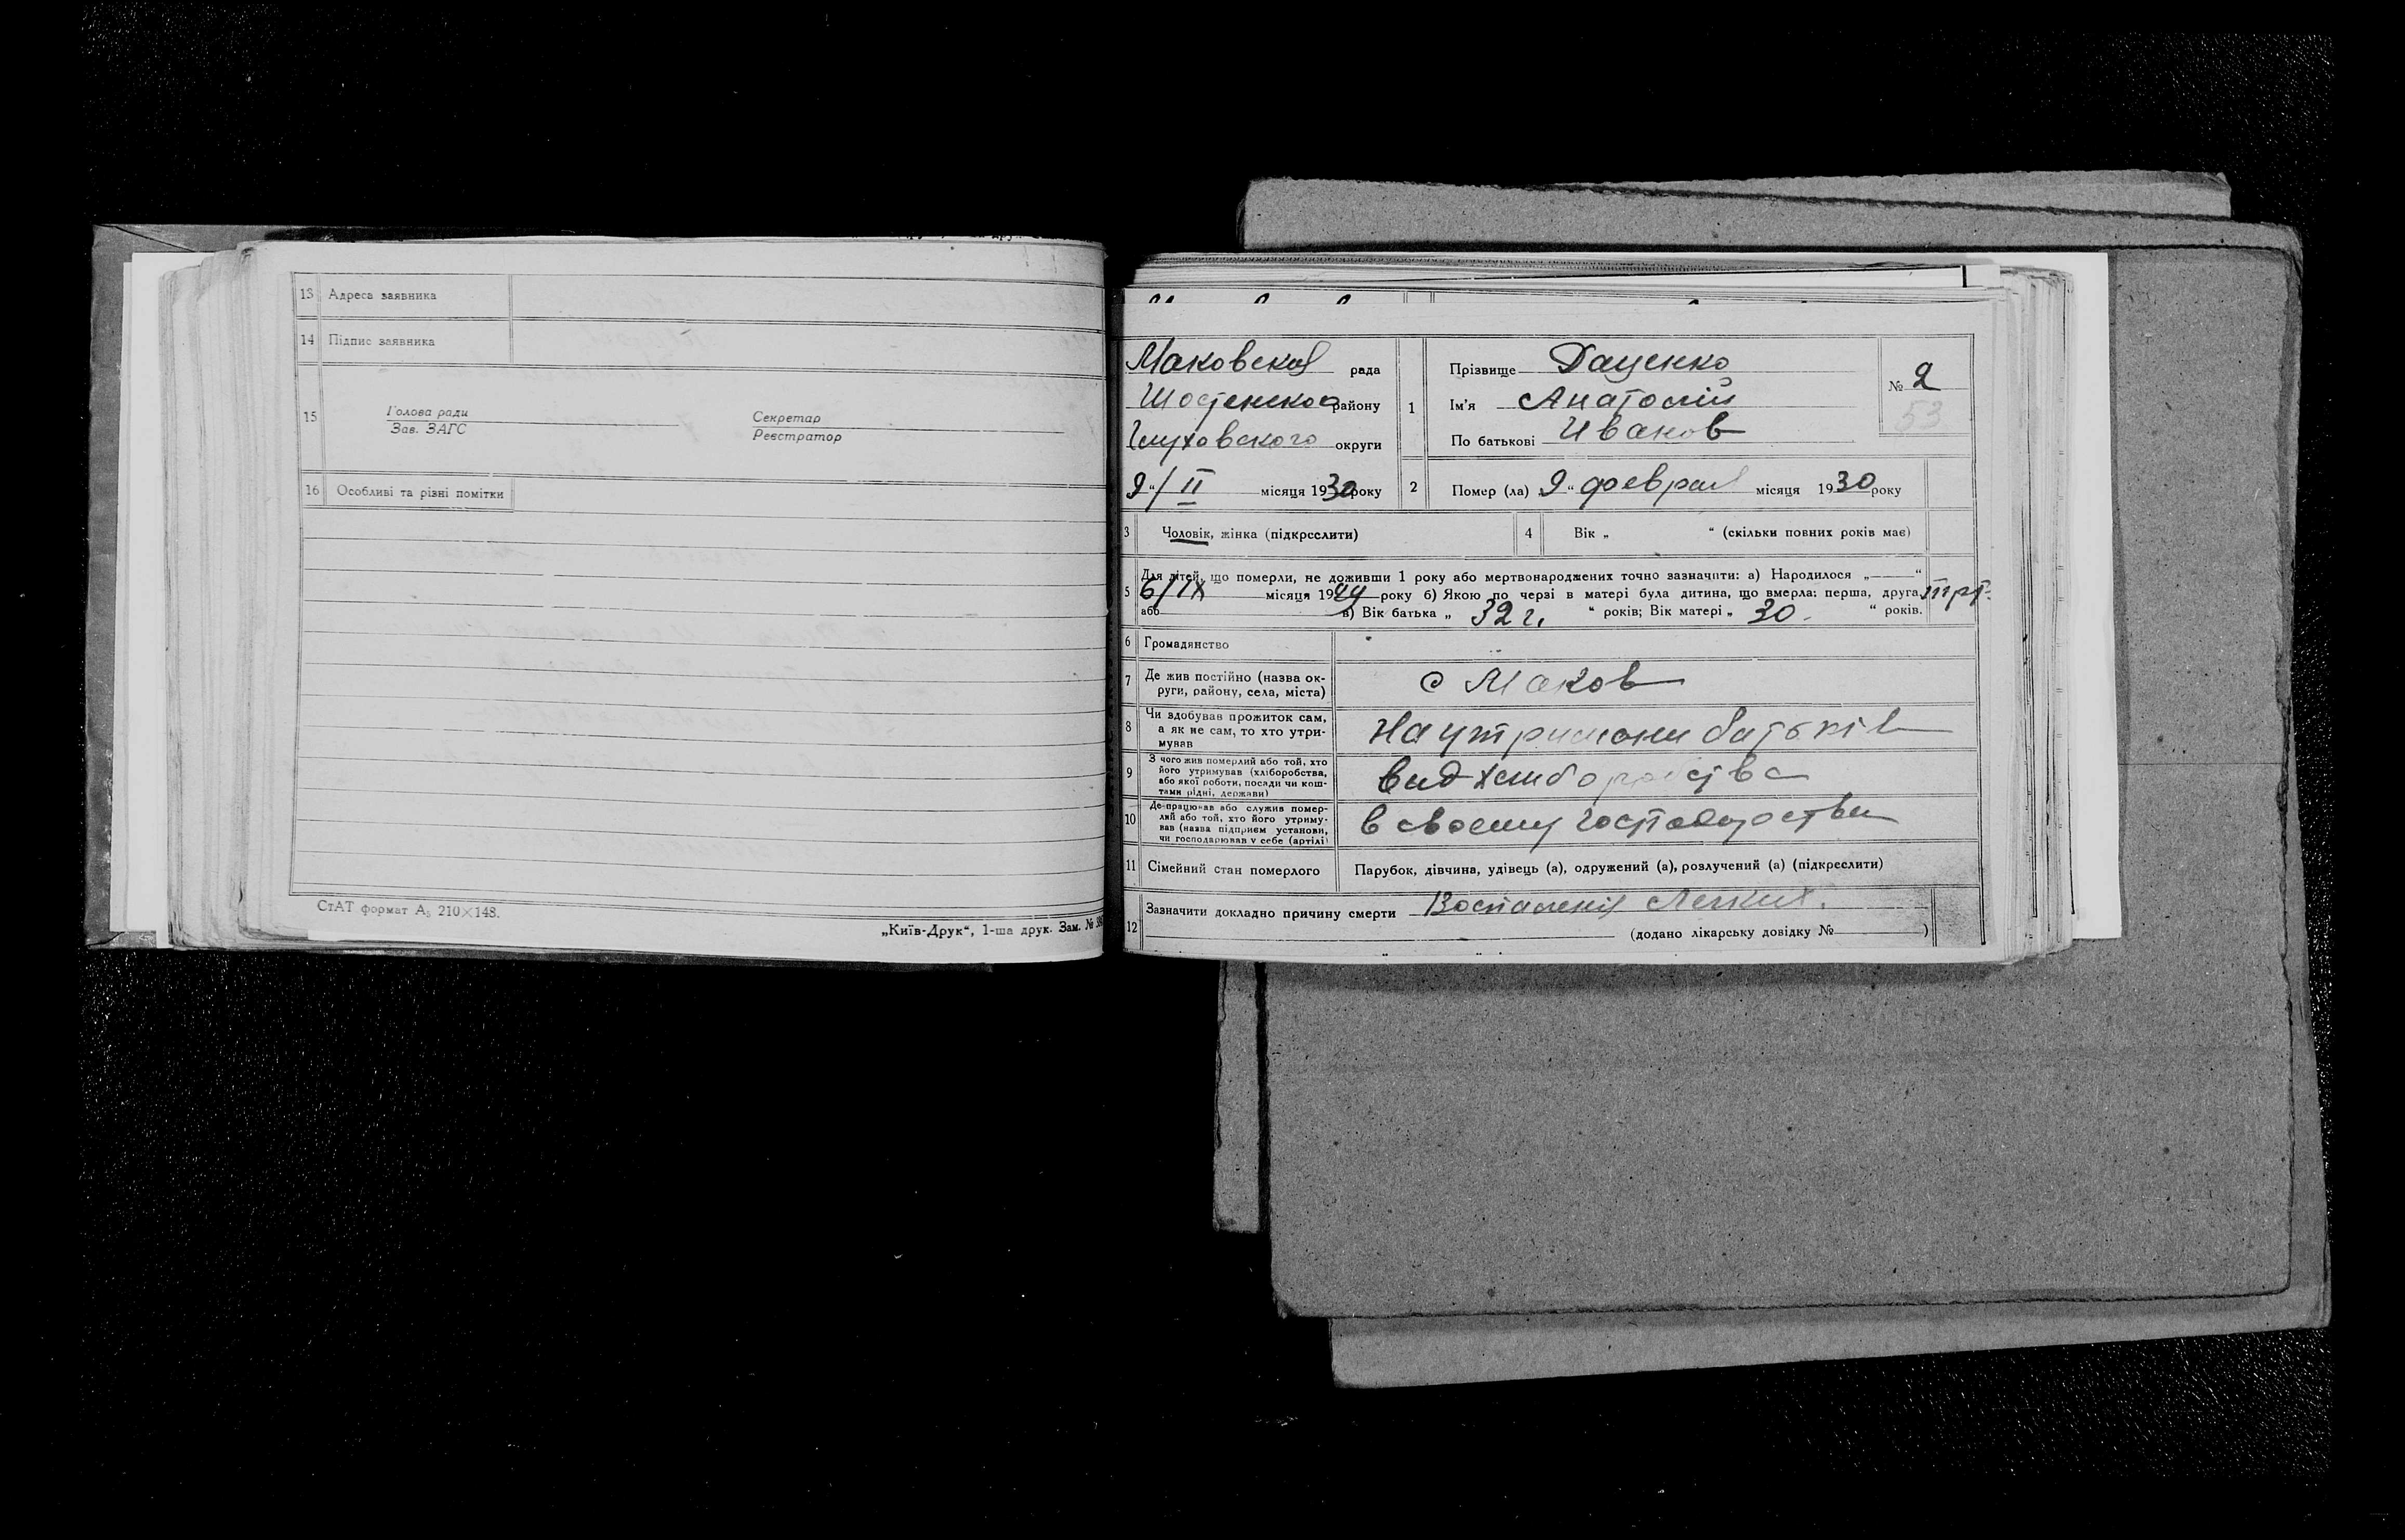 13 Адреса заявника
14 Підпис заявника
15 Голова ради Секретар
Зав. ЗАГС Реєстратор
16 Особливі та різні помітки
СтАТ формат А₅ 210×148.
„Київ-Друк“, 1-ша друк. Зам. №
Маковская рада
Шостенского району
Глуховского округи
9“/II місяця 1930 року
1 Прізвище Даценко
Ім'я Анатолій
По батькові Иванов
№ 2
53
2 Помер (ла) „9“ феврал місяця 1930 року
3 Чоловік, жінка (підкреслити)
4 Вік „ “ (скільки повних років має)
5 Для дітей, що померли, не доживши 1 року або мертвонароджених точно зазначити: а) Народилося „ “
6/IX місяця 1929 року б) Якою по черзі в матері була дитина, що вмерла: перша, друга
або в) Вік батька „ 32 г. “ років; Вік матері „ 30. “ років.
6 Громадянство
7 Де жив постійно (назва ок-
руги, району, села, міста)
с Маков
8 Чи здобував прожиток сам,
а як не сам, то хто утри-
мував
На утримани батьків
9 З чого жив померлий або той, хто
його утримував (хліборобства,
або якої роботи, посади чи кош-
тами рідні, держави)
вид хлиборобства
10 Де працював або служив помер-
лий або той, хто його утриму-
вав (назва підприєм установи,
чи господарював у себе (артілі)
в своему господарстви
11 Сімейний стан померлого
Парубок, дівчина, удівець (а), одружений (а), розлучений (а) (підкреслити)
12 Зазначити докладно причину смерти Воспаления Легких.
(додано лікарську довідку № )